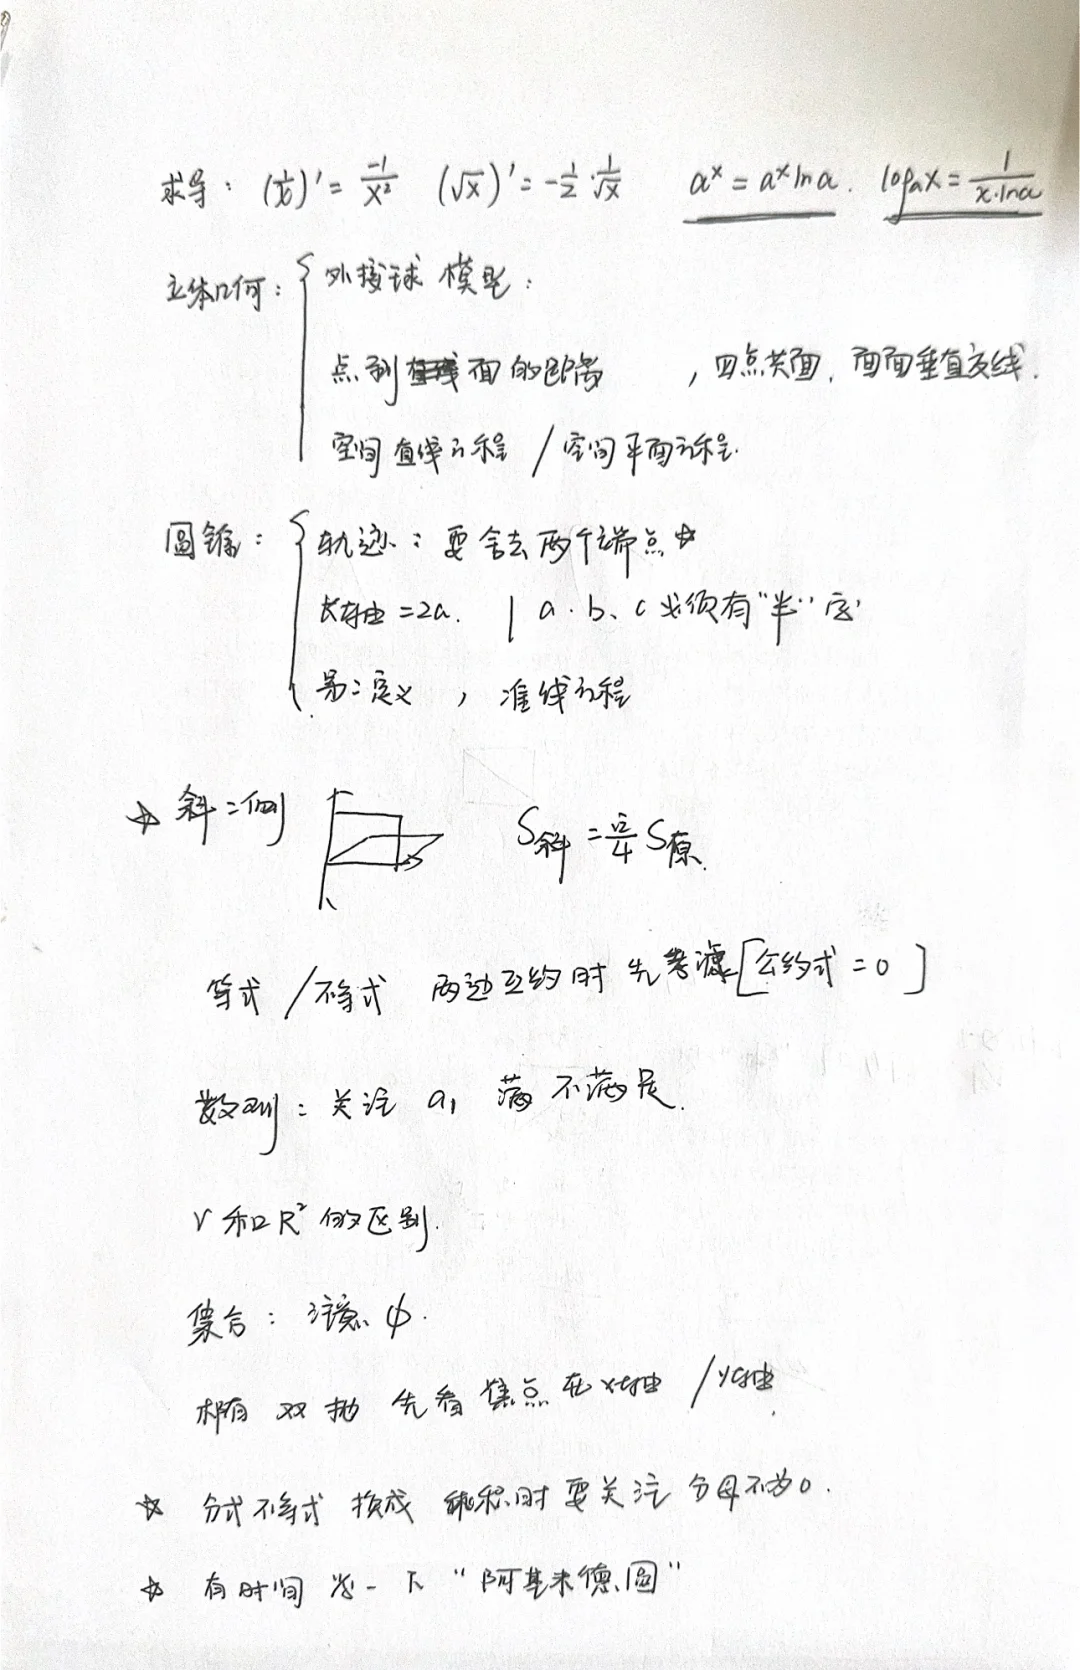 求导：(1/x)'=-1/x²  (√x)'=-1/2·1/√x  aˣ=aˣlna.  logₐx=1/(x·lna)
立体几何：{外接球模型：
点到面的距离，四点共面，面面垂直交线.
空间直线方程/空间平面方程.
圆锥：{轨迹：要舍去两个端点☆
长轴=2a. | a.b、c必须有"半"字
第二定义，准线方程
☆斜二侧 S斜=√2/4 S原.
等式/不等式 两边互约时先考虑[公约式=0]
数列：关注a₁满不满足.
r和R²的区别.
集合：注意ф.
椭 双 抛 先看焦点在x轴/y轴
☆ 分式不等式换成乘积时要关注分母不为0.
☆ 有时间 一下"阿基米德圆"